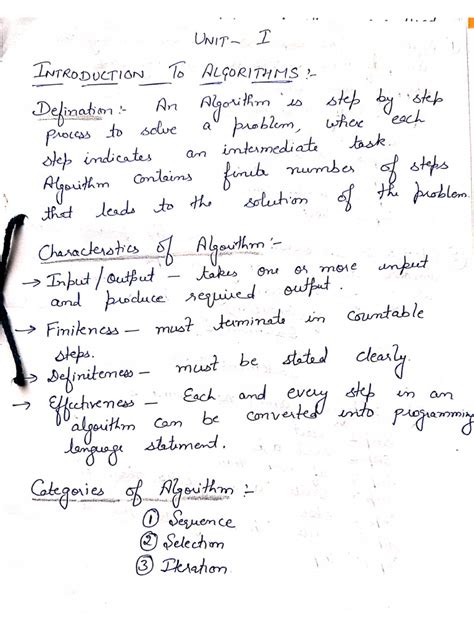 UNIT - I
INTRODUCTION To ALGORITHMS :-
Defination :- An Algorithm is step by step
process to solve a problem, where each
step indicates an intermediate task.
Algorithm contains finite number of steps
that leads to the solution of the problem
Characterstics of Algorithm :-
→ Input / output - takes one or more input
and produce required output.
→ Finiteness - must terminate in countable
steps.
→ Definiteness - must be stated clearly.
→ Effectiveness - Each and every step in an
algorithm can be converted into programming
language statement.
Categories of Algorithm :-
① Sequence
② Selection
③ Iteration